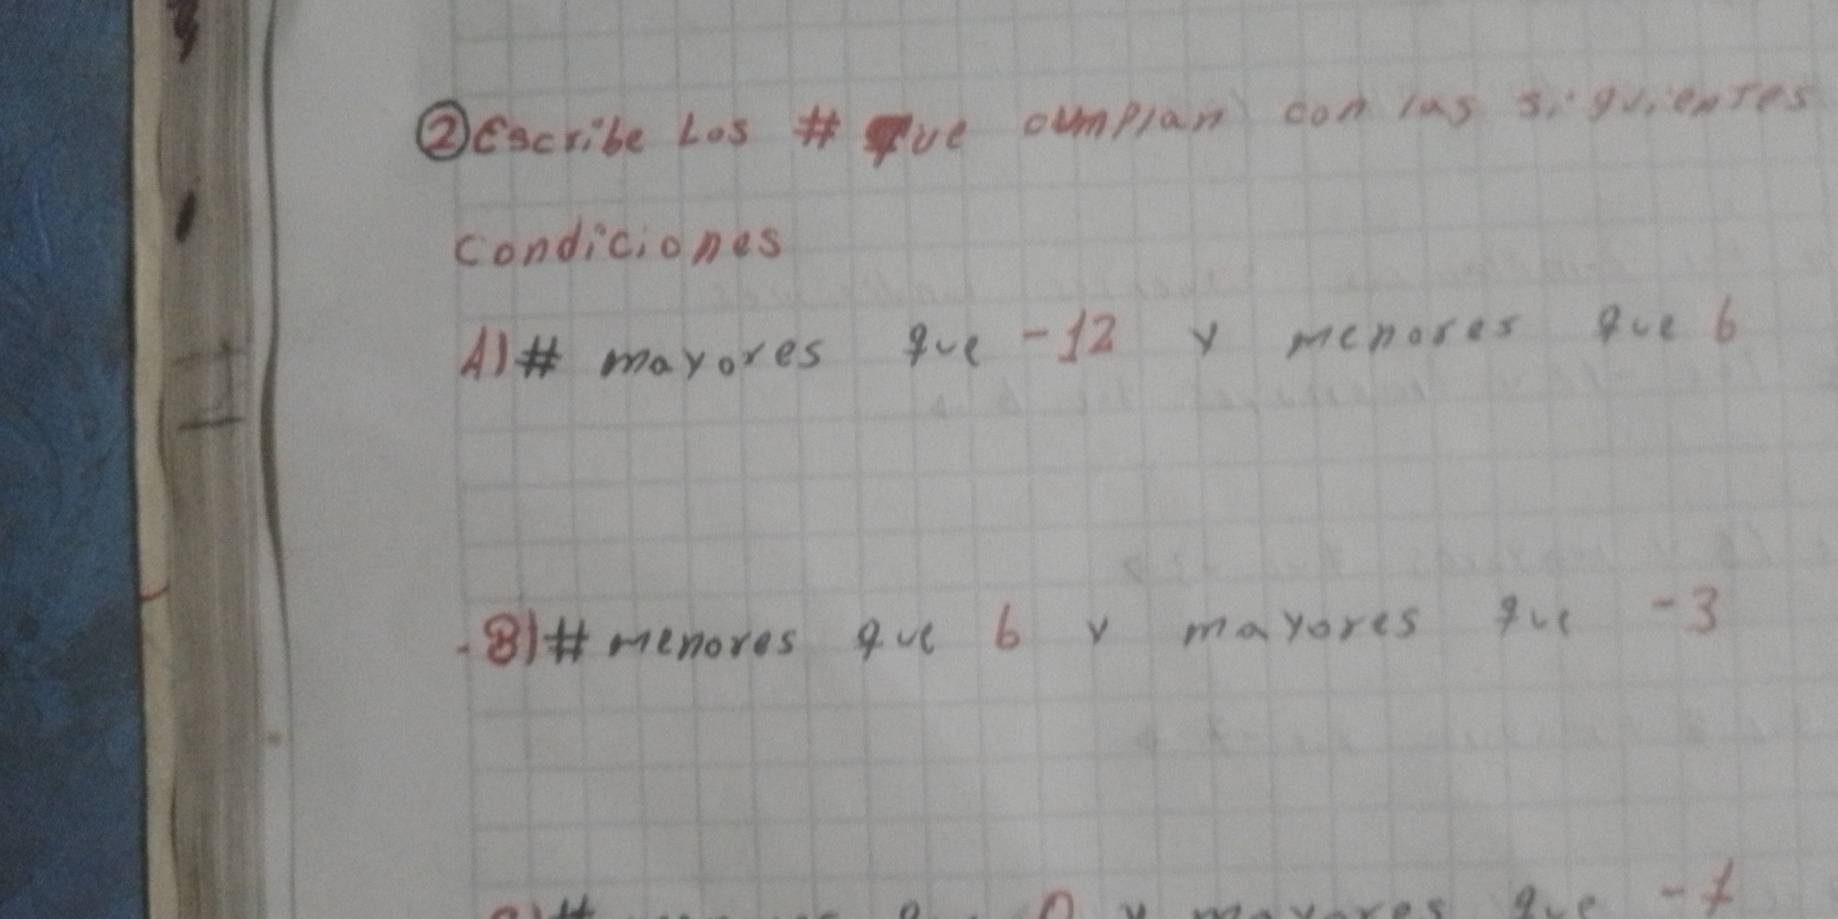 ② Escribe Los # que cumplan con las siguientes
condiciones
A) # mayores que -12 y menores que 6
-B) # menores que 6 y mayores que -3
# que 0 y mayores que